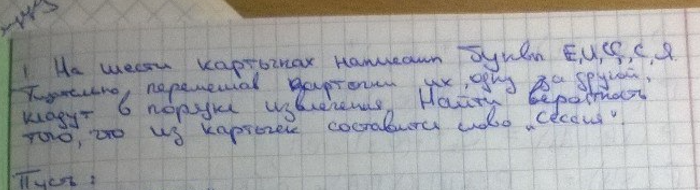 1 На шести карточках написаны буквы Е,И,С,С,С,Я.
Тщательно, перемешав карточки их, одну за другой,
кладут в порядке извлечения. Найти вероятность
того, что из карточек составится слово „Сессия".
Пусть: